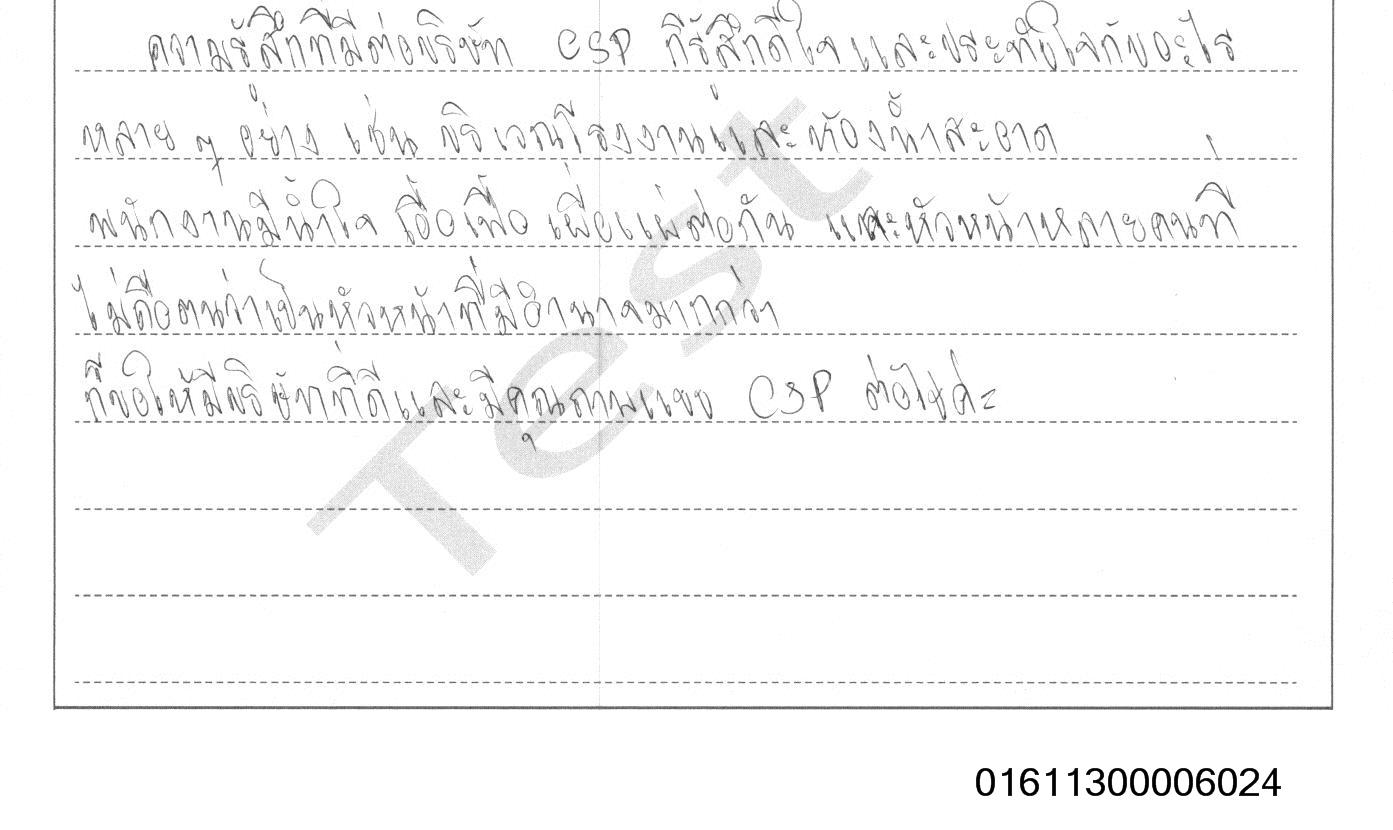 ความรู้สึกที่มีต่อบริษัท CSP ก็รู้สึกดีใจ และประทับใจกับอะไร
หลาย ๆ อย่าง เช่น บริเวณโรงงานและห้องน้ำสะอาด
พนักงานมีน้ำใจ เอื้อเฟื้อ เผื่อแผ่ต่อกัน และหัวหน้าหลายคนที่
ไม่ถือตนว่าเป็นหัวหน้าที่มีอำนาจมากกว่า
ก็ขอให้มีบริษัทที่ดีและมีคุณภาพแบบ CSP ต่อไปค่ะ
Test
01611300006024